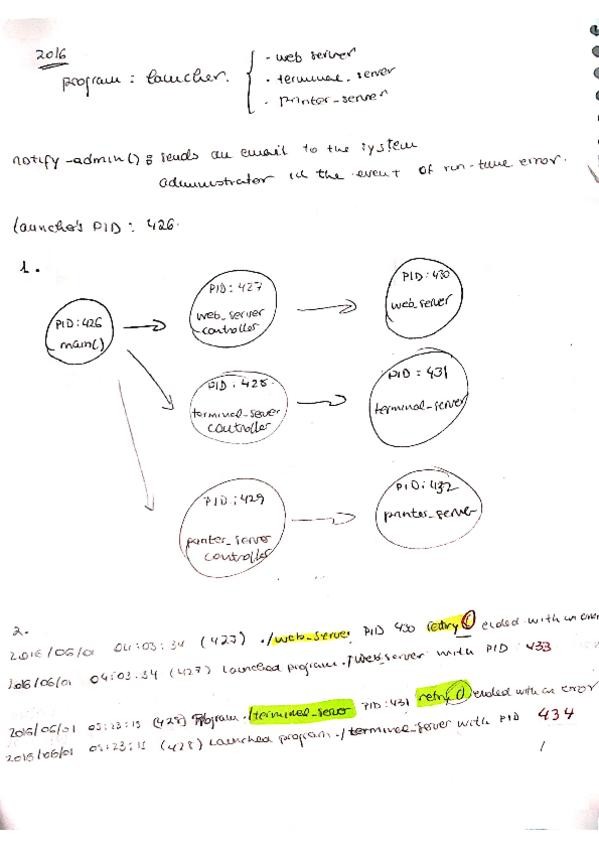 2016
program : launcher.
- web server
- terminal_server
- Printer_server
notify-admin() : sends an email to the system
administrator in the event of run-time error.
launcher's PID : 426.
1.
PID: 426
main()
PID: 427
web_server
controller
PID: 430
web_server
PID: 428
terminal_server
controller
PID: 431
terminal_server
PID: 429
printer_server
controller
PID: 432
printer_server
2.
2016/06/01 04:03:34 (427) ./web_server PID 430 retry ended with an error
2016/06/01 04:03:34 (427) launched program ./web_server with PID 433
2016/06/01 05:23:15 (428) Program ./terminal_server PID: 431 retry ended with an error
2016/06/01 05:23:15 (428) launched program ./terminal_server with PID 434